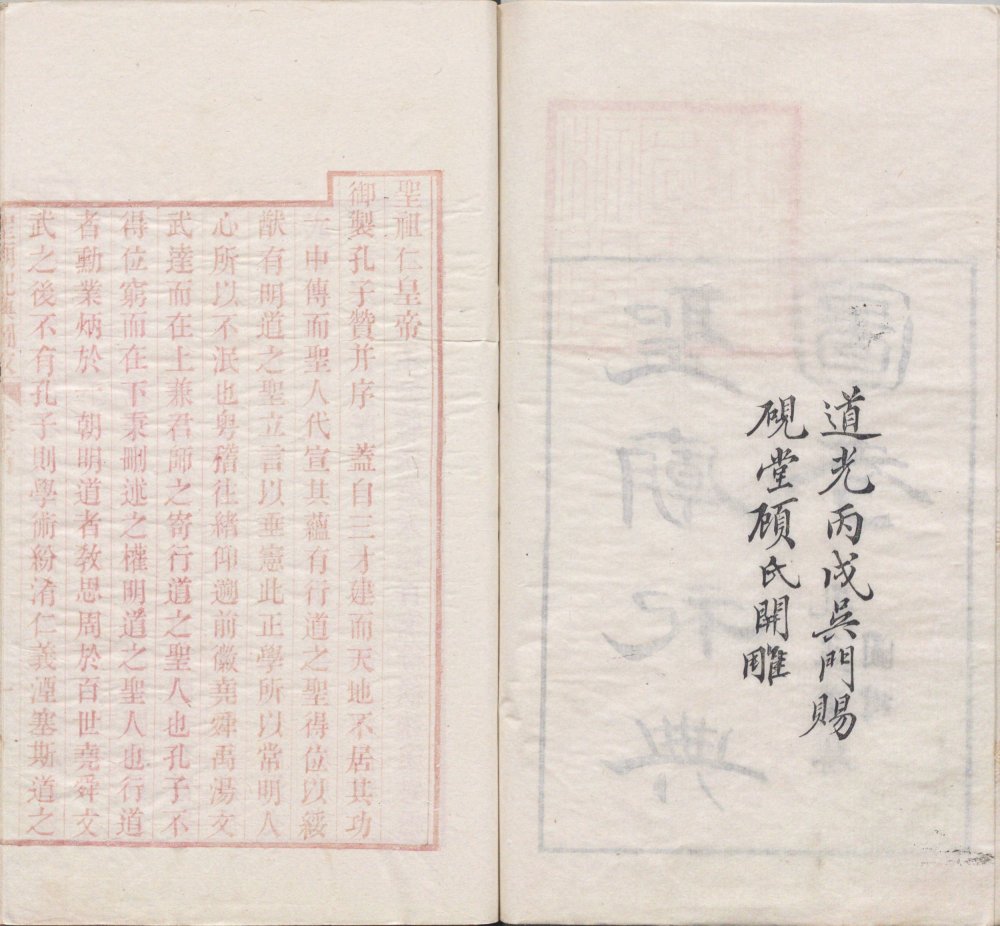 道光丙戌吳門賜
硯堂顧氏開雕
聖祖仁皇帝
御製孔子贊并序　蓋自三才建而天地不居其功
一中傳而聖人代宣其蘊有行道之聖得位以綏
猷有明道之聖立言以垂憲此正學所以常明人
心所以不泯也粵稽往緒仰遡前徽堯舜禹湯文
武達而在上兼君師之寄行道之聖人也孔子不
得位窮而在下秉刪述之權明道之聖人也行道
者勳業炳於一朝明道者教思周於百世堯舜文
武之後不有孔子則學術紛淆仁義湮塞斯道之